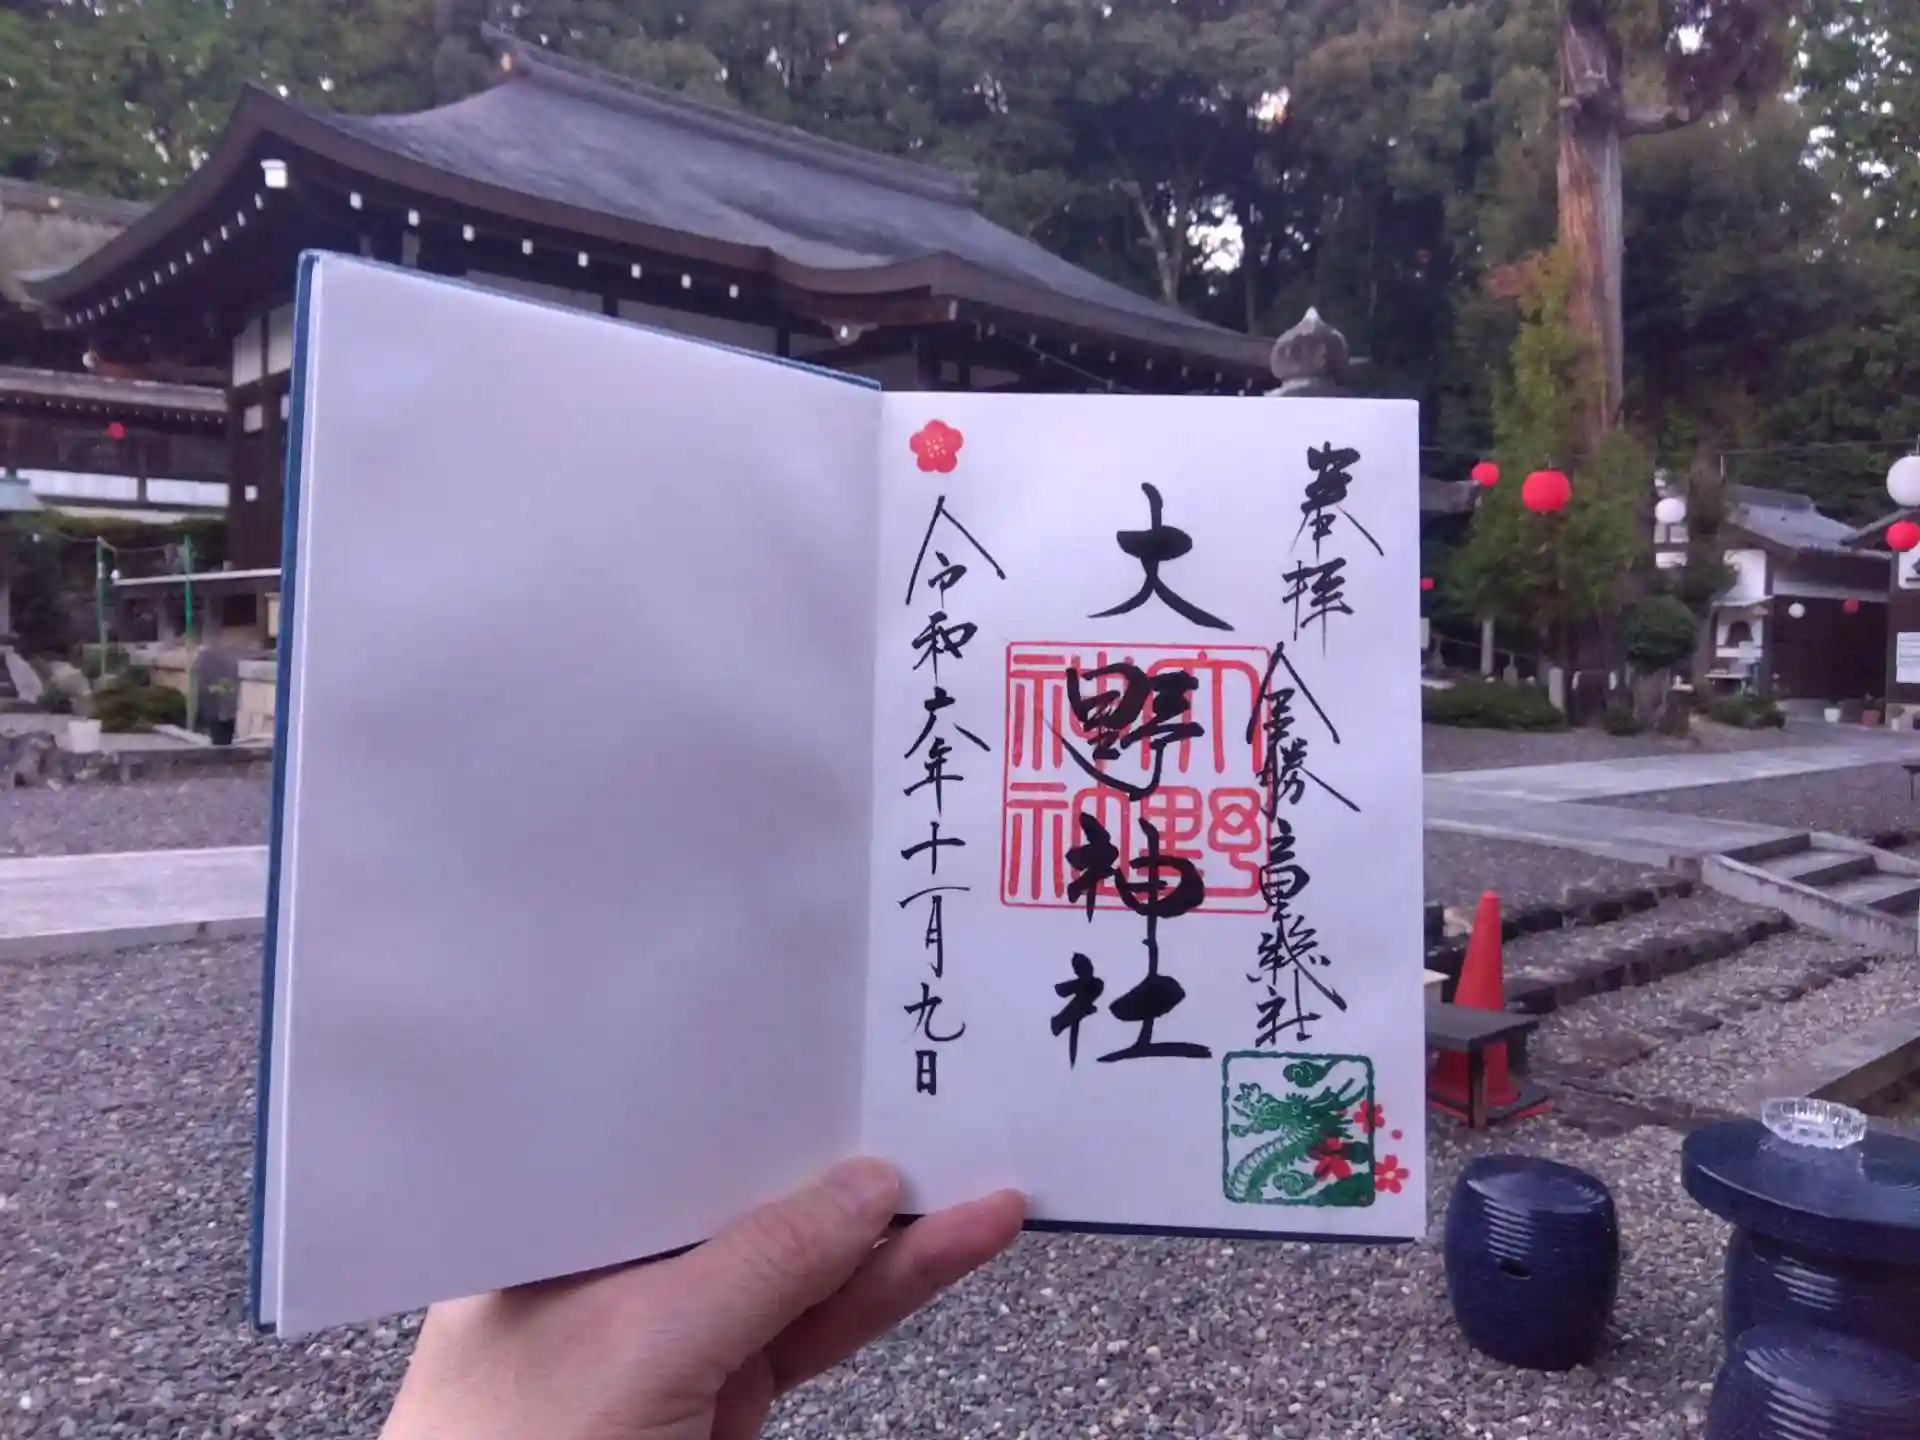 奉拝
金勝 高野総社
大野神社
大野神社
令和六年十一月九日